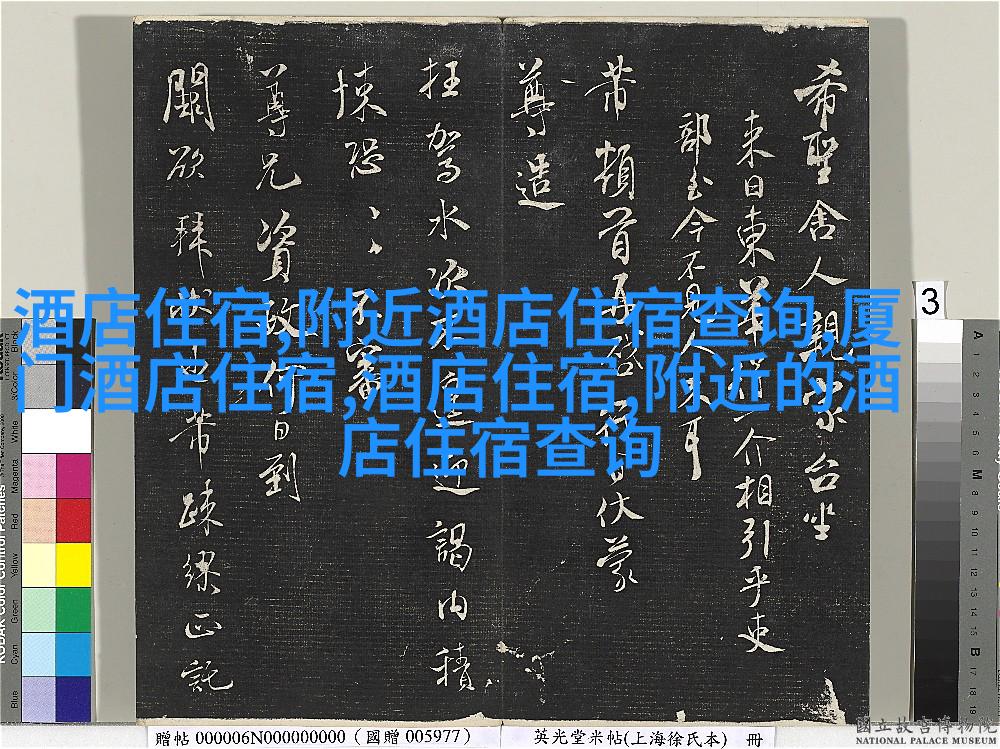 希聖舍人親家台坐
来日東華一介相引乎吏
部今不見人来耳
芾頓首再啓日伏蒙
尊造
枉駕水次迎謁内積
悚恐、、不審
尊兄資政何日到
闕欲拜芾疎繆正託
酒店住宿,附近酒店住宿查询,厦
门酒店住宿,酒店住宿,附近的酒
店住宿查询
3
3/Color
White
Magenta
Red
Yellow
Green
Cyan
Blue
A
1
2
3
4
5
6
M
8
9
10
11
12
13
14
15
B
17
18
19
贈帖 000006N000000000 (國贈 005977)
英光堂米帖(上海徐氏本) 冊
國立故宮博物院
NATIONAL PALACE MUSEUM